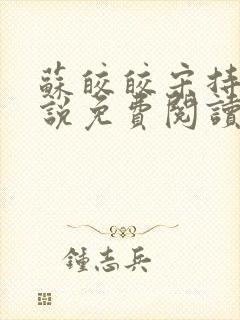 蘇皎皎宋持
說免費閱讀
鍾志兵